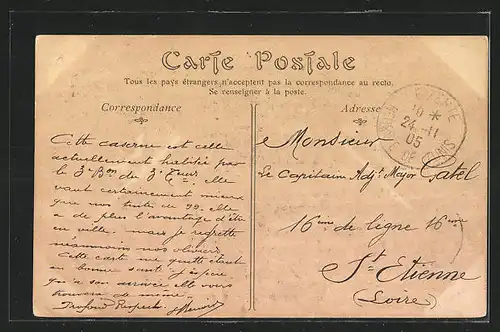 Carte Postale
Tous les pays étrangers n'acceptent pas la correspondance au recto.
Se renseigner à la poste.
Correspondance
Adresse
Cette caserne est celle
actuellement habitée par
le 3e Bon de 3e Zeurs, elle
vaut certainement mieux
que nos tente de 99. Elle
a de plus l'avantage d'être
en ville, mais je regrette
néanmoins nos oliviers
Cette carte me quitte étant
en bonne santé j'espère
qu'à son arrivée elle vous
trouvera de même.
Profond Respect.
Monsieur
Le Capitaine Adjt Major Gatel
16ème de ligne 16ème
St Etienne
(Loire)
10 *
24 -11
05